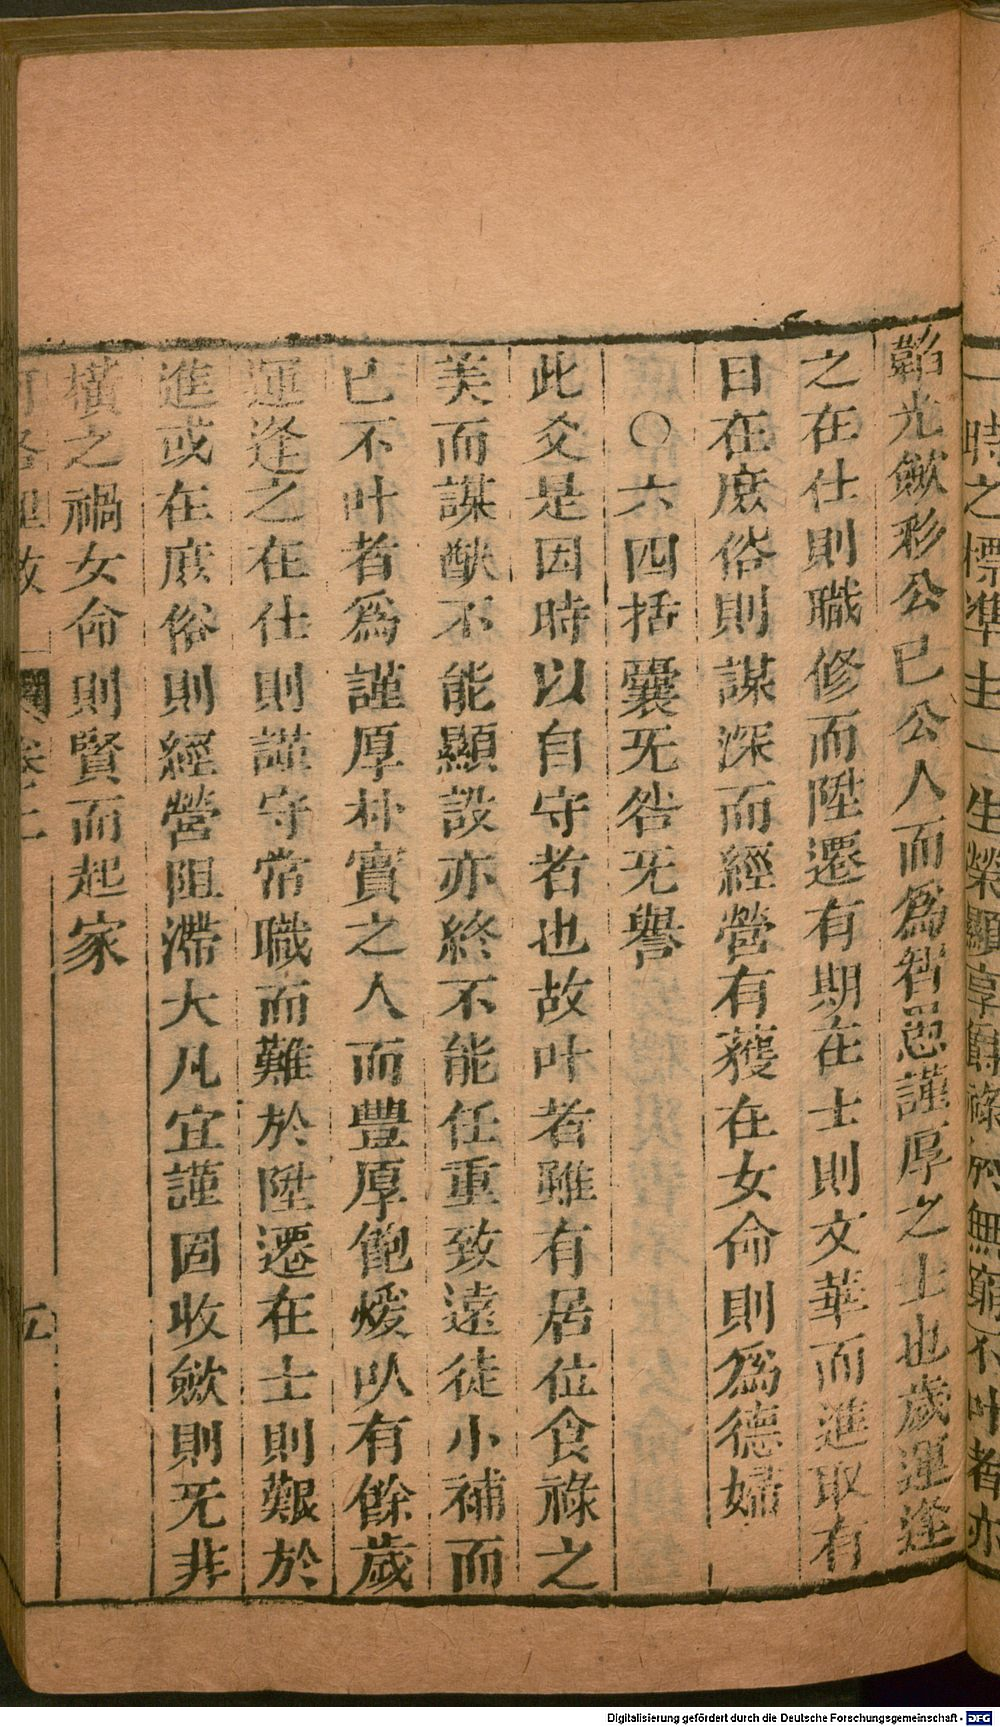 一時之標準主一生榮顯享爵祿於無窮不叶者亦
韜光斂彩公已公人而爲智思謹厚之士也歲運逢
之在仕則職修而陞遷有期在士則文華而進取有
日在庶俗則謀深而經營有獲在女命則爲德婦
○六四括囊旡咎旡譽
此爻是因時以自守者也故叶者雖有居位食祿之
美而謀猷不能顯設亦終不能任重致遠徒小補而
已不叶者爲謹厚朴實之人而豐厚飽煖以有餘歲
運逢之在仕則謹守常職而難於陞遷在士則艱於
進或在庶俗則經營阻滯大凡宜謹固收斂則旡非
橫之禍女命則賢而起家
卷二
五
Digitalisierung gefördert durch die Deutsche Forschungsgemeinschaft - DFG